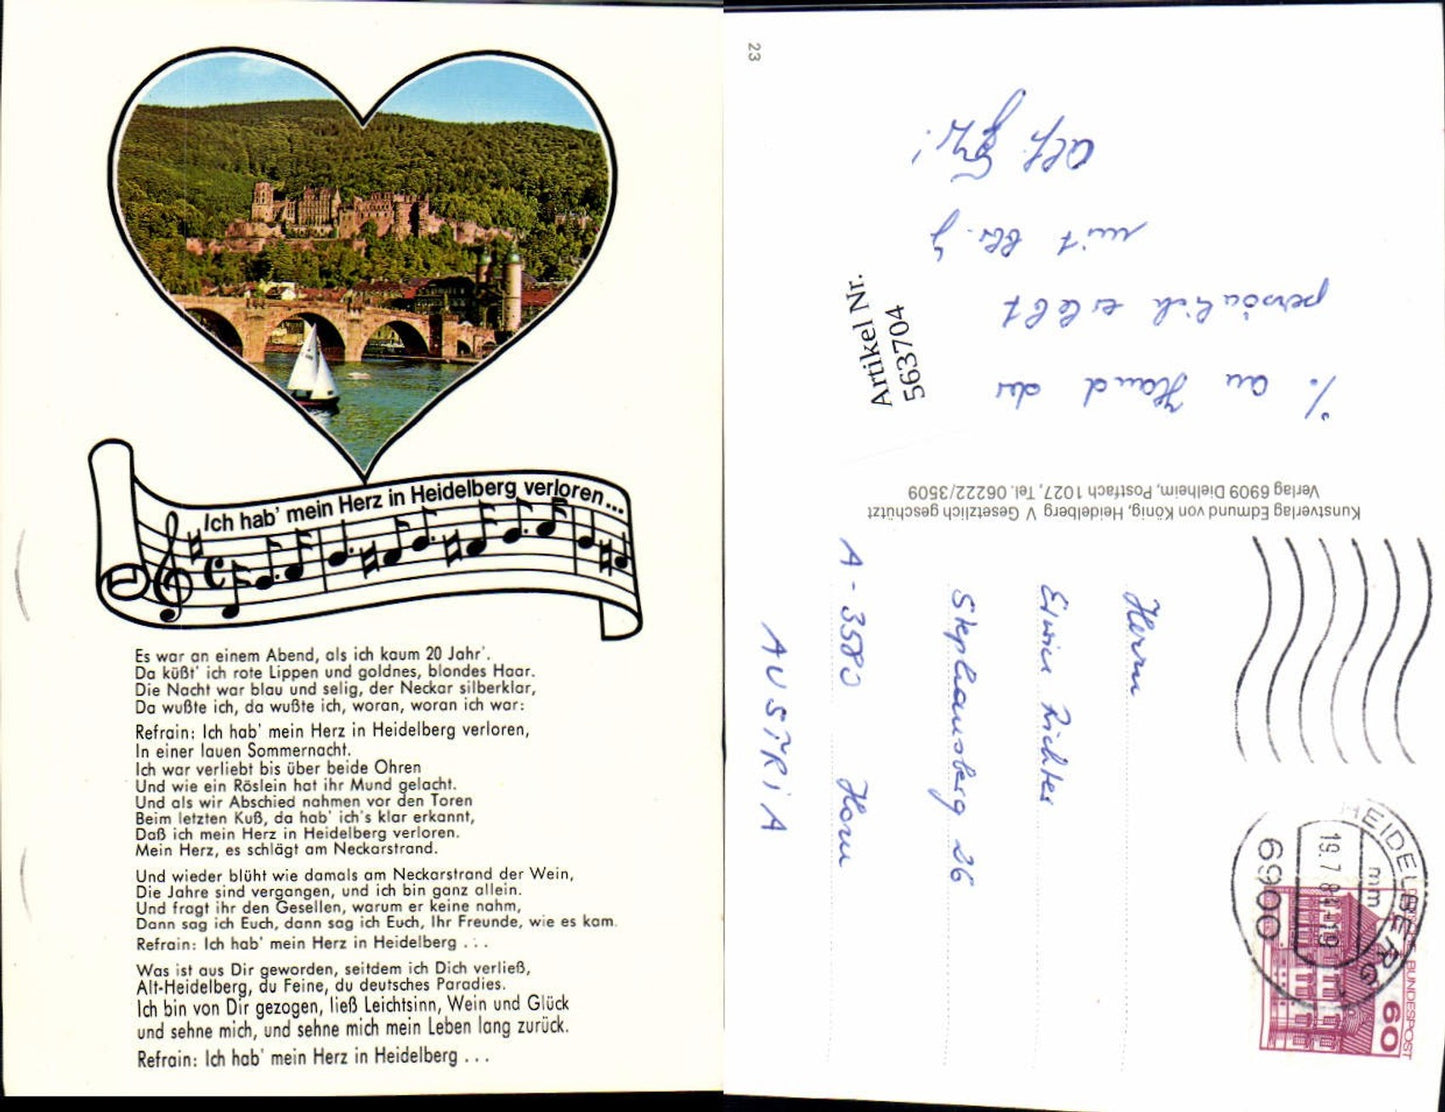 Ich hab' mein Herz in Heidelberg verloren...
Es war an einem Abend, als ich kaum 20 Jahr'.
Da küßt' ich rote Lippen und goldnes, blondes Haar.
Die Nacht war blau und selig, der Neckar silberklar,
Da wußte ich, da wußte ich, woran, woran ich war:
Refrain: Ich hab' mein Herz in Heidelberg verloren,
In einer lauen Sommernacht.
Ich war verliebt bis über beide Ohren
Und wie ein Röslein hat ihr Mund gelacht.
Und als wir Abschied nahmen vor den Toren
Beim letzten Kuß, da hab' ich's klar erkannt,
Daß ich mein Herz in Heidelberg verloren.
Mein Herz, es schlägt am Neckarstrand.
Und wieder blüht wie damals am Neckarstrand der Wein,
Die Jahre sind vergangen, und ich bin ganz allein.
Und fragt ihr den Gesellen, warum er keine nahm,
Dann sag ich Euch, dann sag ich Euch, Ihr Freunde, wie es kam.
Refrain: Ich hab' mein Herz in Heidelberg . . .
Was ist aus Dir geworden, seitdem ich Dich verließ,
Alt-Heidelberg, du Feine, du deutsches Paradies.
Ich bin von Dir gezogen, ließ Leichtsinn, Wein und Glück
und sehne mich, und sehne mich mein Leben lang zurück.
Refrain: Ich hab' mein Herz in Heidelberg . . .
23
%. an Hand der
persönlich erlebt
mit
Artikel Nr.
563704
Kunstverlag Edmund von König, Heidelberg V Gesetzlich geschützt
Verlag 6909 Dielheim, Postfach 1027, Tel. 06222/3509
Herrn
Erwin Richter
Stephansberg 26
A-3580 Horn
AUSTRIA
HEIDELBERG 1
mm
6900
DEUTSCHE BUNDESPOST
60